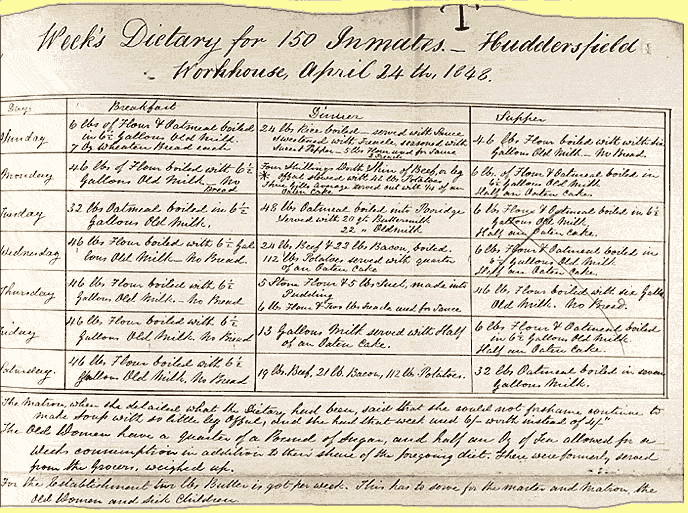 T
Week's Dietary for 150 Inmates. – Huddersfield
Workhouse, April 24th, 1848.
Days Breakfast Dinner Supper
Sunday
6 lbs of Flour & Oatmeal boiled
in 6½ Gallons Old Milk
7 oz Wheaten Bread each
24 lbs Rice boiled – served with Sauce
Sweetened with Treacle, seasoned with
Sweet Pepper – 3 lbs Flour used for Sauce
& Treacle
46 lbs Flour boiled with six
Gallons Old Milk – No Bread.
Monday
46 lbs of Flour boiled with 6½
Gallons Old Milk – No
Bread
Four Shillings Worth Shin of Beef, or leg
* offal stewed with 42 lbs Potatoes
thick, gills average served out with ¼ of an
oaten Cake
6 lbs. of Flour & Oatmeal boiled in
6½ Gallons Old Milk.
Half an Oaten Cake.
Tuesday
32 lbs Oatmeal boiled in 6½
Gallons Old Milk.
48 lbs Oatmeal boiled into Porridge
Served with 20 qts Buttermilk
22 " Oldmilk
6 lbs Flour & Oatmeal boiled in 6½
Gallons Old Milk
Half an Oaten Cake.
Wednesday
46 lbs Flour boiled with 6½ Gal
lons Old Milk – No Bread.
24 lbs Beef & 22 lbs Bacon, boiled.
112 lbs Potatoes served with quarter
of an Oaten Cake
6 lbs Flour & Oatmeal boiled in
6½ Gallons Old Milk
Half an Oaten Cake.
Thursday
46 lbs Flour boiled with 6½
Gallons Old Milk – No Bread
5 Stone Flour & 5 lbs Suet, made into
Pudding
6 lbs Flour & Two lbs treacle used for Sauce
46 lbs Flour boiled with six Galls
Old Milk. No Bread.
Friday
46 lbs Flour boiled with 6½
Gallons Old Milk, No Bread
13 Gallons Milk served with Half
of an Oaten Cake.
6 lbs Flour & Oatmeal boiled
in 6½ Gallons Old Milk.
Half an Oaten Cake.
Saturday.
46 lbs Flour boiled with 6½
Gallons Old Milk, No Bread
19 lbs Beef, 21 lbs Bacon, 112 lbs Potatoes.
32 lbs Oatmeal boiled in seven
Gallons Milk.
The Matron, when she detailed what the Dietary had been, said that she could not forshame continue to
make Soup with so little leg Offal, and she had that week used 6/- worth instead of 4/"
The Old Women have a quarter of a Pound of Sugar, and half an Oz of Tea allowed for a
Weeks consumption in addition to their share of the foregoing diet. These were formerly served
from the Grocers, weighed up.
For the Establishment two lbs Butter is got per week. This has to serve for the master and Matron, the
Old Women and sick Children